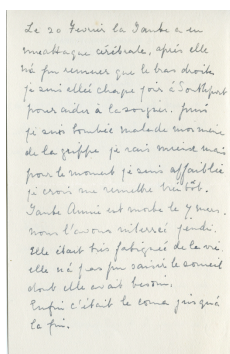 Le 20 Février la Tante a eu
une attaque cérébrale, après elle
n'a pu remuer que le bras droit
je suis allée chaque jour à Southport
pour aider à la soigner. puis
je suis tombée malade moi même
de la grippe je vais mieux mais
pour le moment je suis affaiblie
je crois me remettre bientôt.
Tante Annie est morte le 7 mars.
nous l'avons enterrée jeudi.
Elle était très fatiguée de la vie
elle n'a pas pu saisir le sommeil
dont elle avait besoin.
Enfin c'était le coma jusqu'à
la fin.